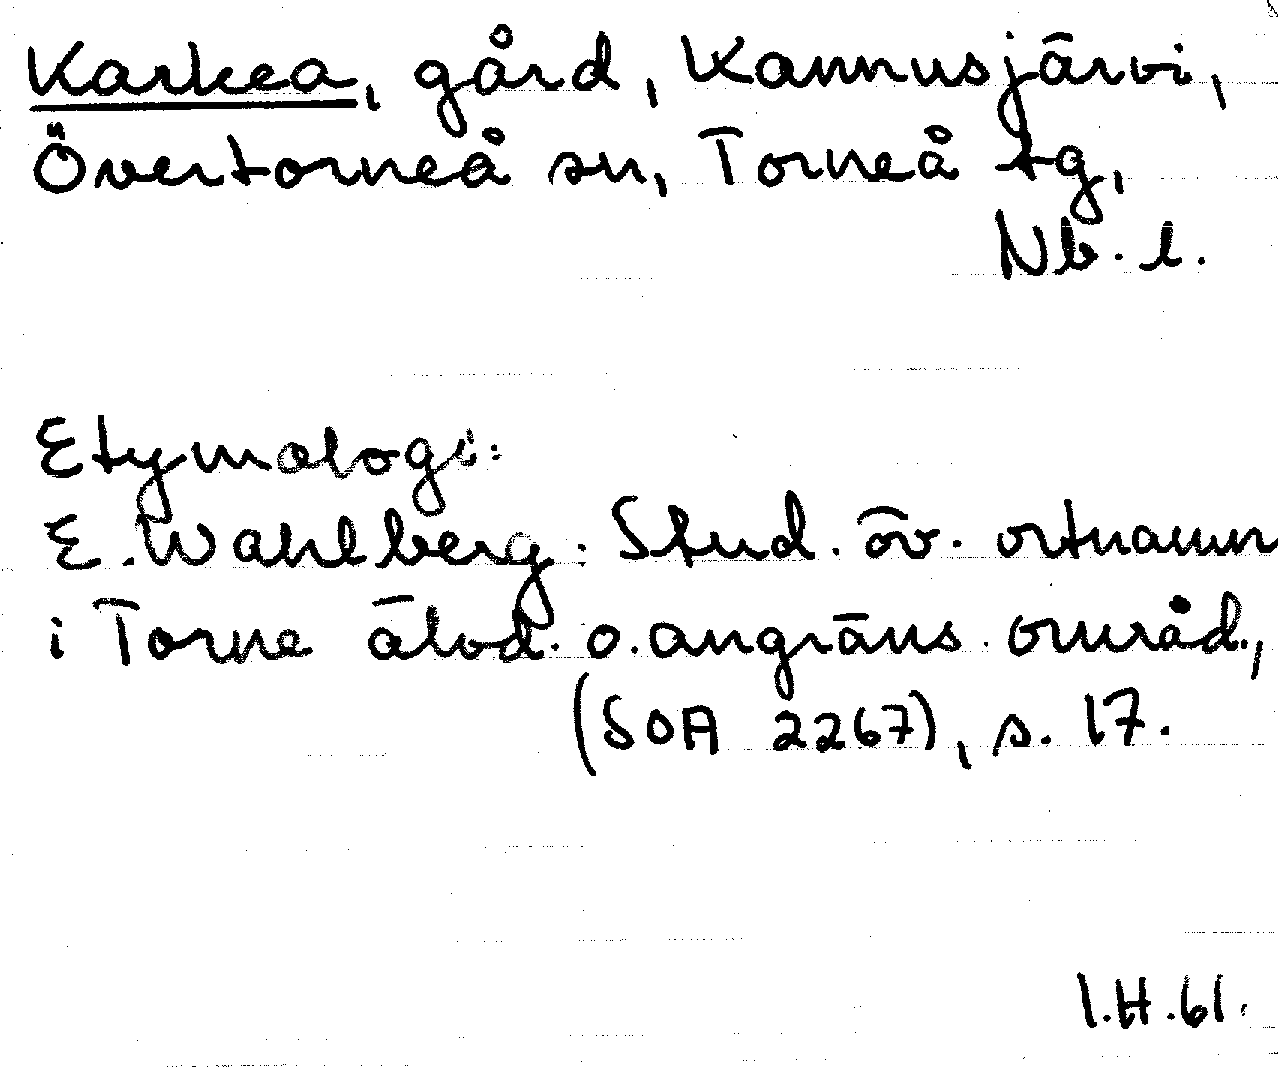 Karkea, gård, Kannusjärvi,
Övertorneå sn, Torneå tg,
Nb. l.
Etymologi:
E. Wahlberg: Stud. öv. ortnamn
i Torne älvd. o. angräns. områd.,
(SOA 2267), s. 17.
I.H.61.